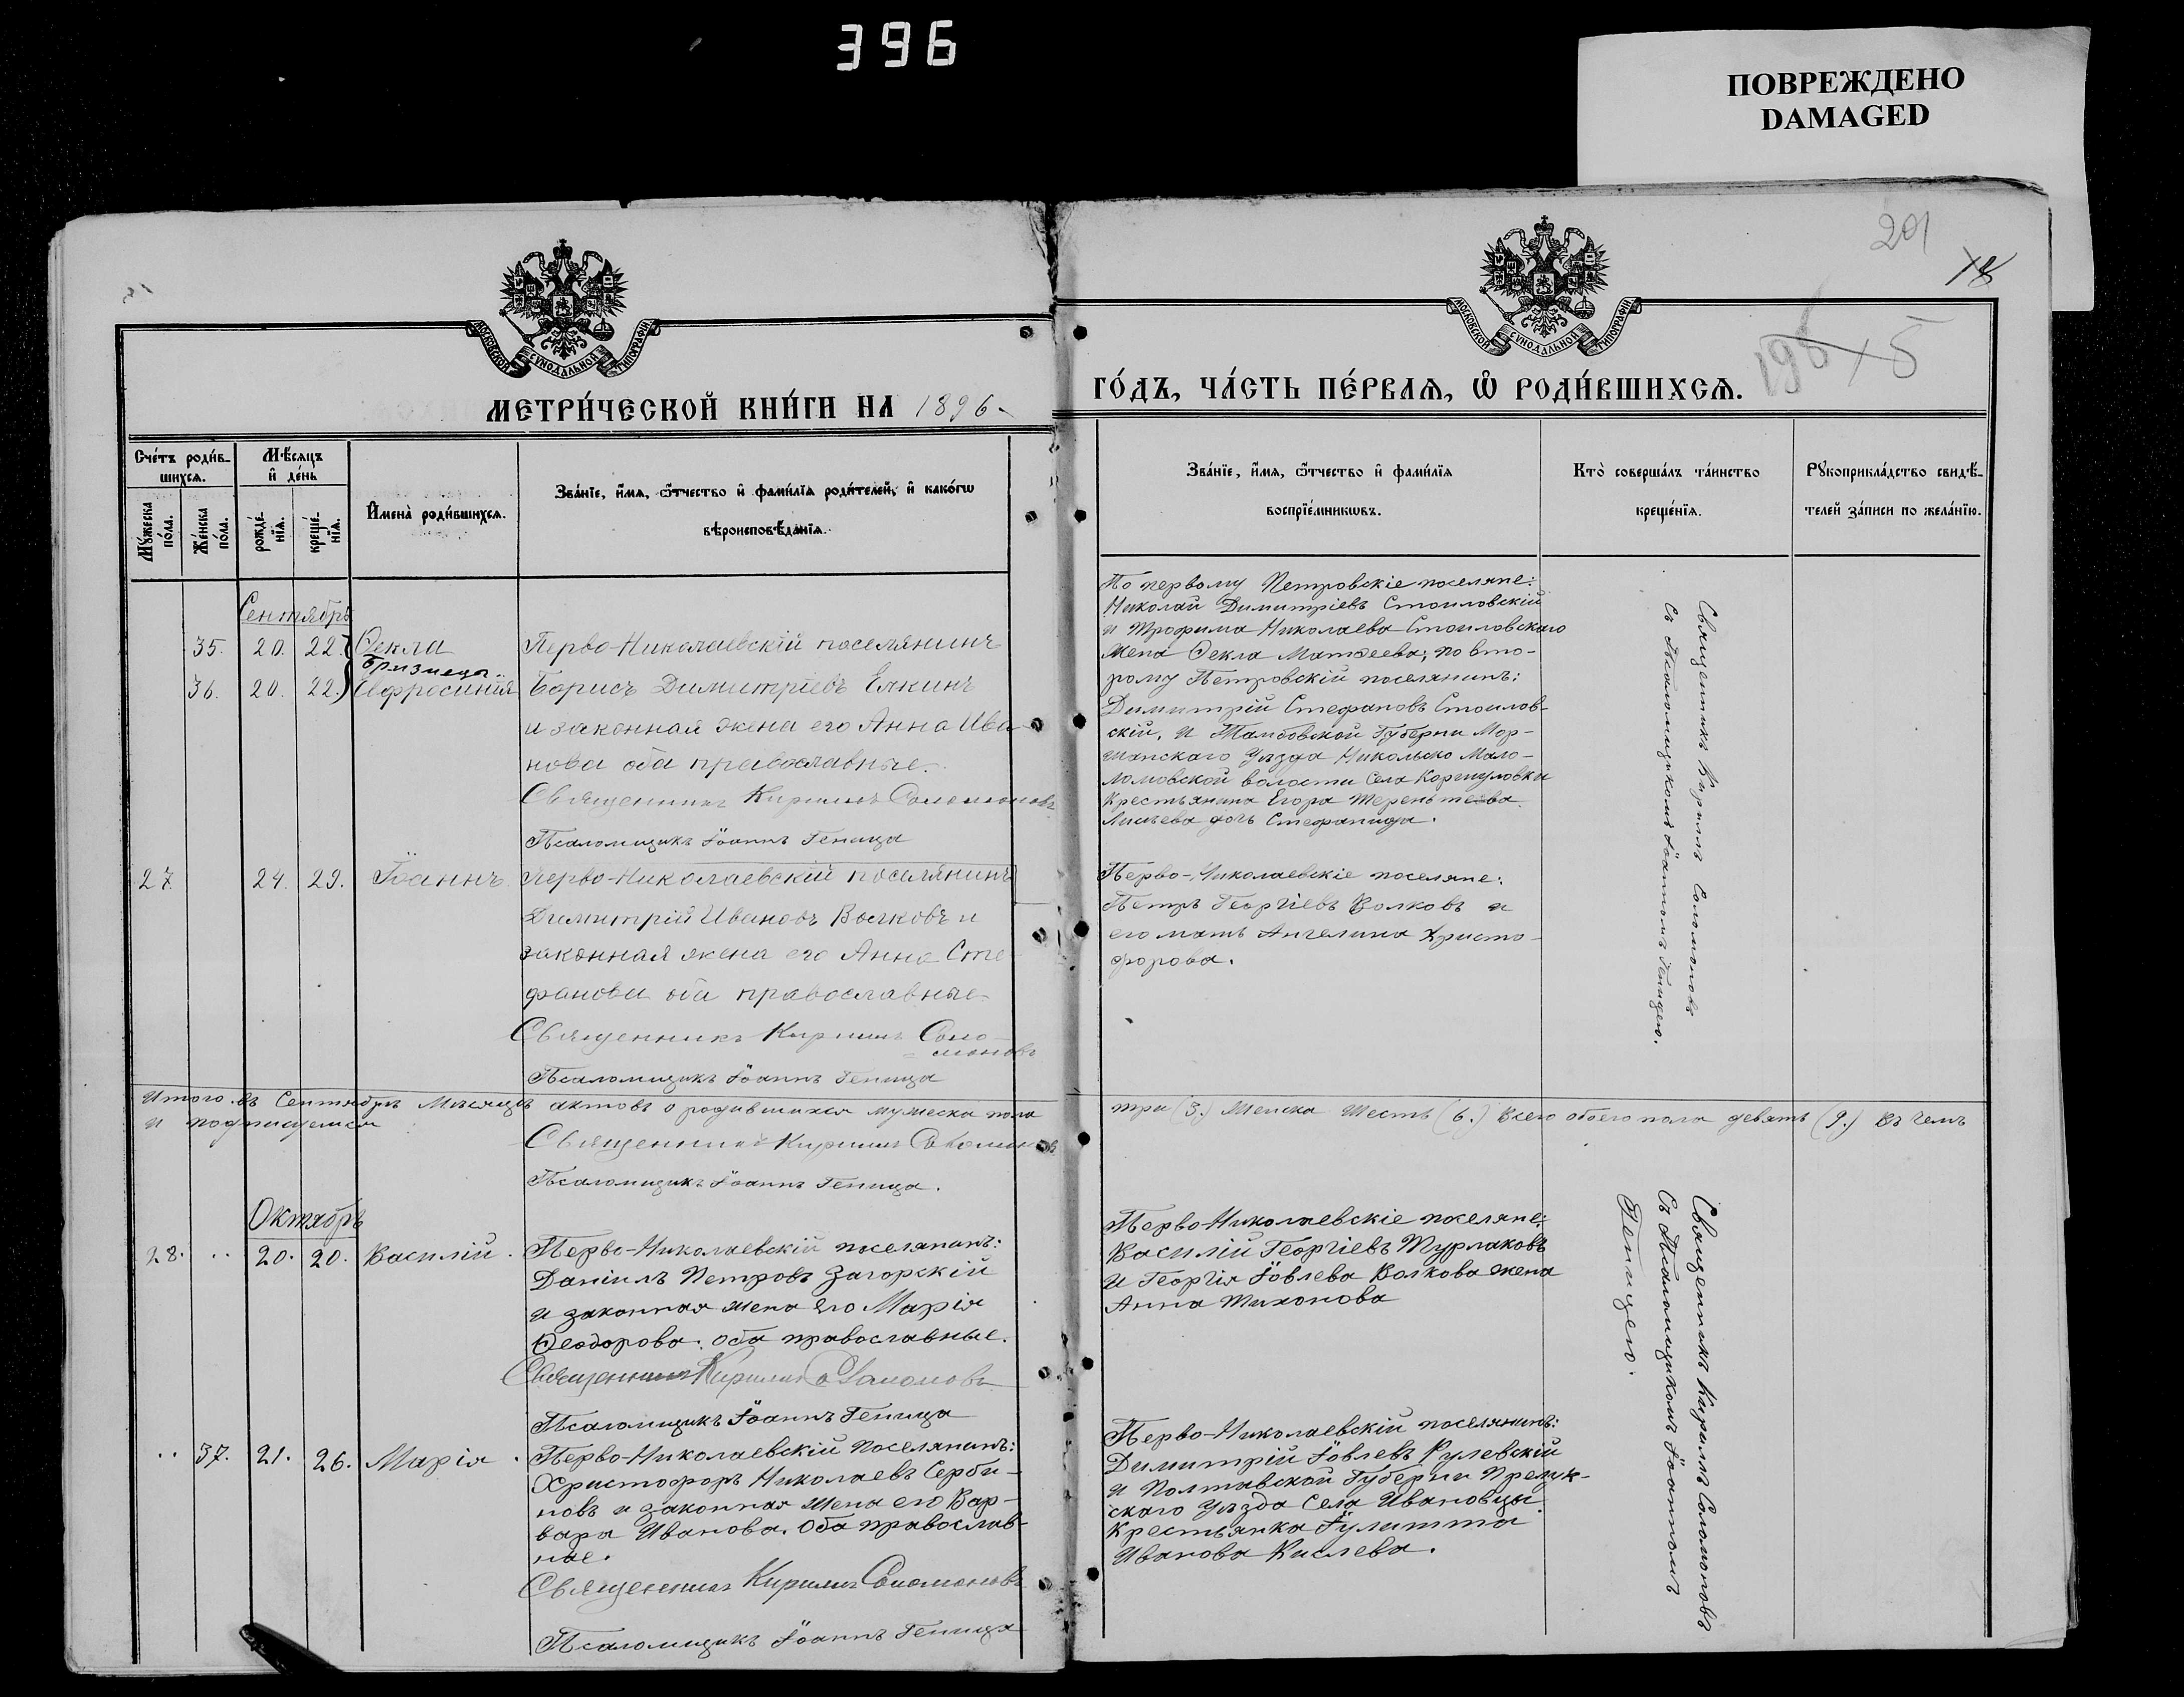 396
ПОВРЕЖДЕНО
DAMAGED
201
18
198 5
МОСКОВСКОЙ СѴНОДАЛЬНОЙ ТИПОГРАФІИ
МОСКОВСКОЙ СѴНОДАЛЬНОЙ ТИПОГРАФІИ
МЕТРИ́ЧЕСКОЙ КНИ́ГИ НА 1896
ГО́ДЪ, ЧА́СТЬ ПЕ́РВАѦ, Ѽ РОДИ́ВШИХСѦ.
Сче́тъ роди́в-
шихсѧ.
Мѣ́сѧцъ
и҆ де́нь
Мꙋ́жеска
по́ла.
Же́нска
по́ла.
рожде́-
нїѧ.
креще́-
нїѧ.
И҆мена̀ роди́вшихсѧ.
Зва́нїе, и҆́мѧ, ѻ҆́тчество и҆ фамѝлїѧ роди́телей, и҆ како́гѡ
вѣроисповѣ́данїѧ.
Зва́нїе, и҆́мѧ, ѻ҆́тчество и҆ фамѝлїѧ
воспрїе́мникѡвъ.
Кто̀ соверша́лъ та́инство
креще́нїѧ.
Рꙋкоприкла́дство свидѣ́-
телей за́писи по жела́нїю.
Сентябрь
35. 20. 22. Ѳекла
близнецы
36. 20. 22. Евфросинія
Перво-Николаевскій поселянинъ
Борисъ Димитріевъ Елкинъ
и законная жена его Анна Ива-
нова оба православные.
Священникъ Кириллъ Соломоновъ
Псаломщикъ Іоаннъ Геница
По первому Петровскіе поселяне:
Николай Димитріевъ Стоиловскій
и Трофима Николаева Стоиловскаго
жена Ѳекла Матѳеева; по вто-
рому Петровскій поселянинъ:
Димитрій Стефановъ Стоилов-
скій, и Тамбовской Губерни Мор-
шанскаго Уѣзда Никольско Мало-
ломовской волости Села
Крестьянина Егора Терентева
дочь Стефанида.
Священникъ Кириллъ Соломоновъ
съ Псаломщикомъ Іоанномъ Геницею.
27 24. 29. Іоаннъ
Перво-Николаевскій поселянинъ
Димитрій Ивановъ Волковъ и
законная жена его Анна Сте-
фанова оба православные
Священникъ Кириллъ Соло-
моновъ
Псаломщикъ Іоаннъ Геница
Перво-Николаевскіе поселяне:
Петръ Георгіевъ Волковъ и
его мать Ангелина Христо-
форова.
Итого въ Сентябрѣ Мѣсяцѣ актовъ о родившихся мужеска пола три (3.) Женска Шесть (6.) Всего обоего пола девять (9.) Въ чемъ
и подписуемся
Священникъ Кириллъ Соломоновъ
Псаломщикъ Іоаннъ Геница.
Октябрь
28. .. 20. 20. Василій.
Перво-Николаевскій поселянинъ:
Даніилъ Петровъ Загорскій
и законная жена его Марія
Ѳеодорова. оба православные.
Священникъ Кириллъ Соломоновъ
Псаломщикъ Іоаннъ Геница
Перво Николаевскіе поселяне:
Василій Георгіевъ Турлаковъ
и Георгія Іовлева Волкова жена
Анна Тихонова
Священникъ Кириллъ Соломоновъ
съ Псаломщикомъ Іоанномъ
Геницею.
.. 37. 21. 26. Марія.
Перво-Николаевскій Поселянинъ:
Христофоръ Николаевъ Серби-
новъ и законная жена его Вар-
вара Иванова. Оба православ-
ные.
Священникъ Кириллъ Соломоновъ
Псаломщикъ Іоаннъ Геница
Перво-Николаевскій поселянинъ:
Димитрій Іовлевъ Рулевскій
и Полтавской Губерни Прелук-
скаго Уѣзда Села Ивановцы
Крестьянка Іулитта
Иванова Кислева.